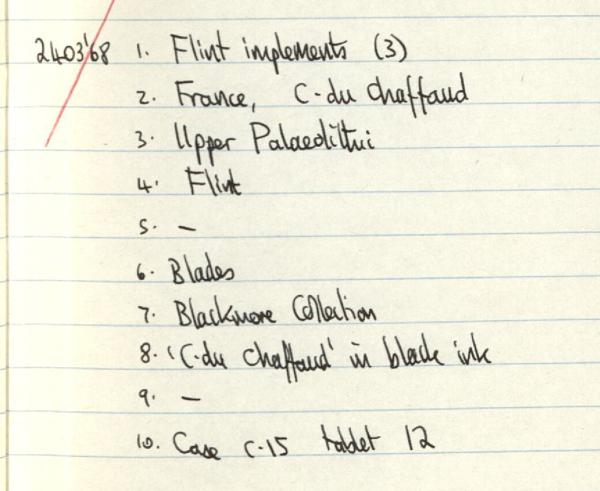 2403'68 1. Flint implements (3)
2. France, C. du Chaffaud
3. Upper Palaeolithic
4. Flint
5. —
6. Blades
7. Blackmore Collection
8. 'C. du Chaffaud' in black ink
9. —
10. Case C.15 tablet 12